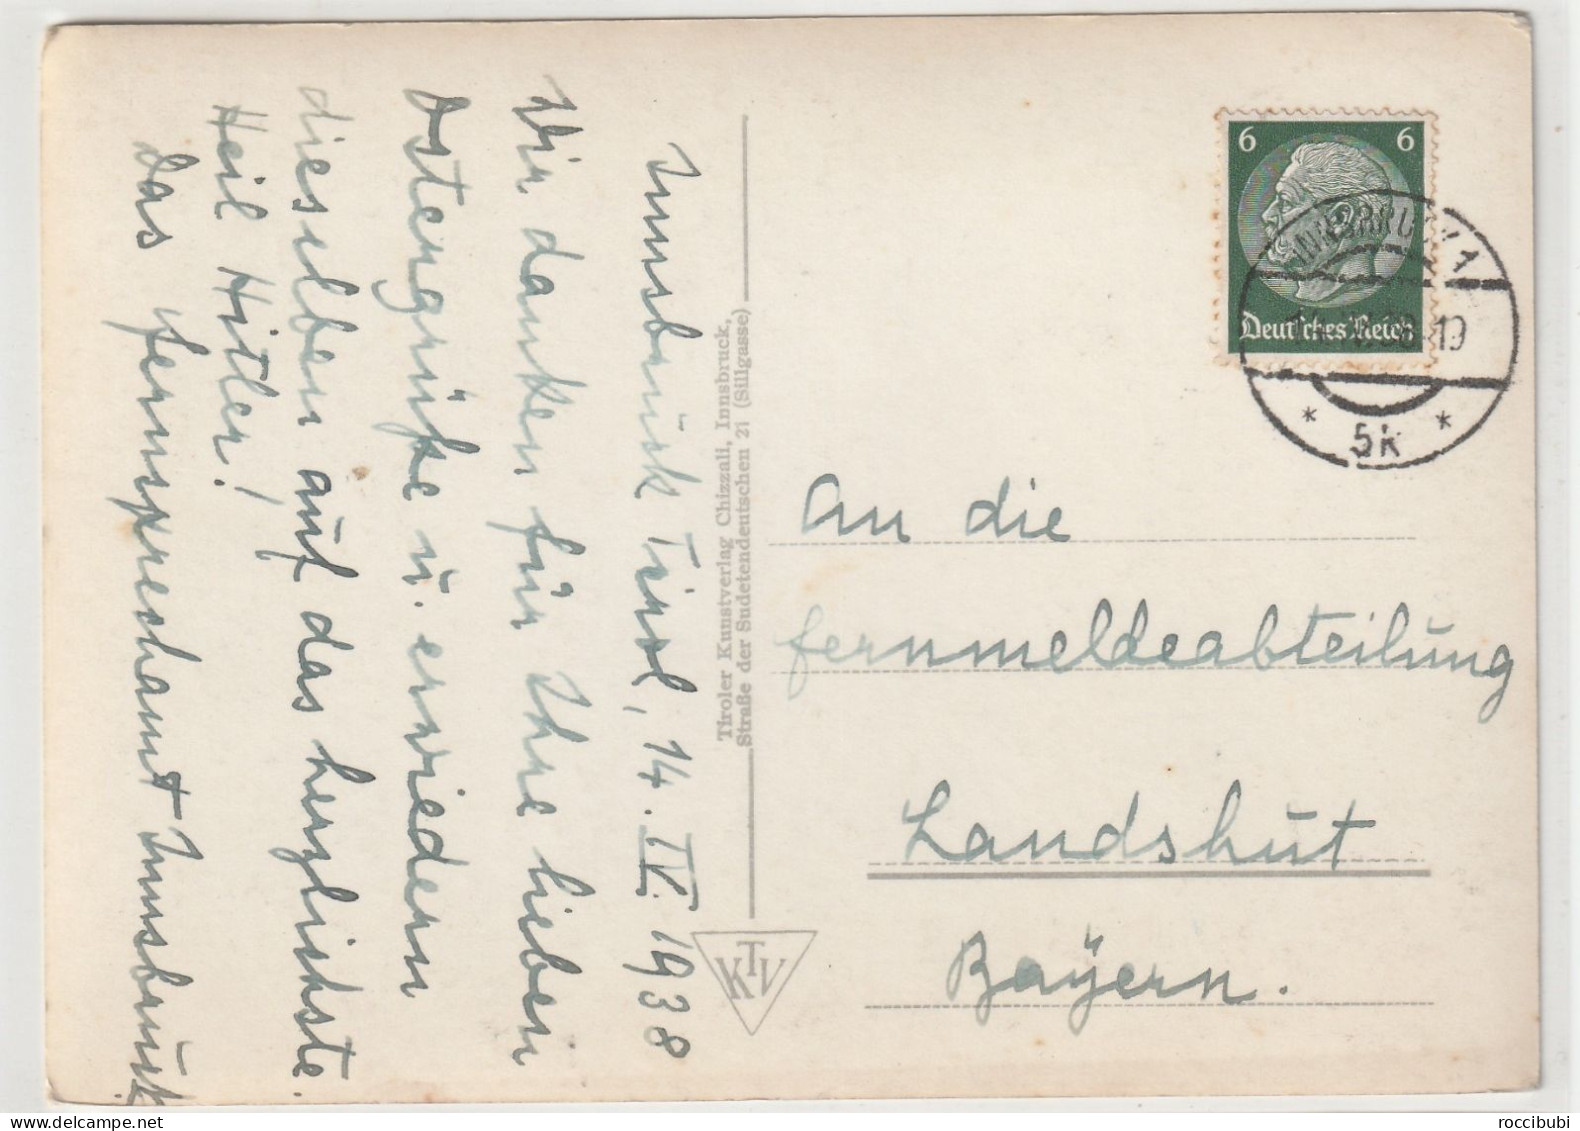 Innsbruck Tirol, 14. IV. 1938
Wir danken für Ihre lieben
Ostergrüße u. erwiedern
dieselben auf das herzlichste.
Heil Hitler!
Das Fernsprechamt Innsbruck.
Tiroler Kunstverlag Chizzali, Innsbruck,
Straße der Sudetendeutschen 21 (Sillgasse)
KTV
6 6
Deutsches Reich
INNSBRUCK 1
* 5k *
An die
Fernmeldeabteilung
Landshut
Bayern.
roccibubi